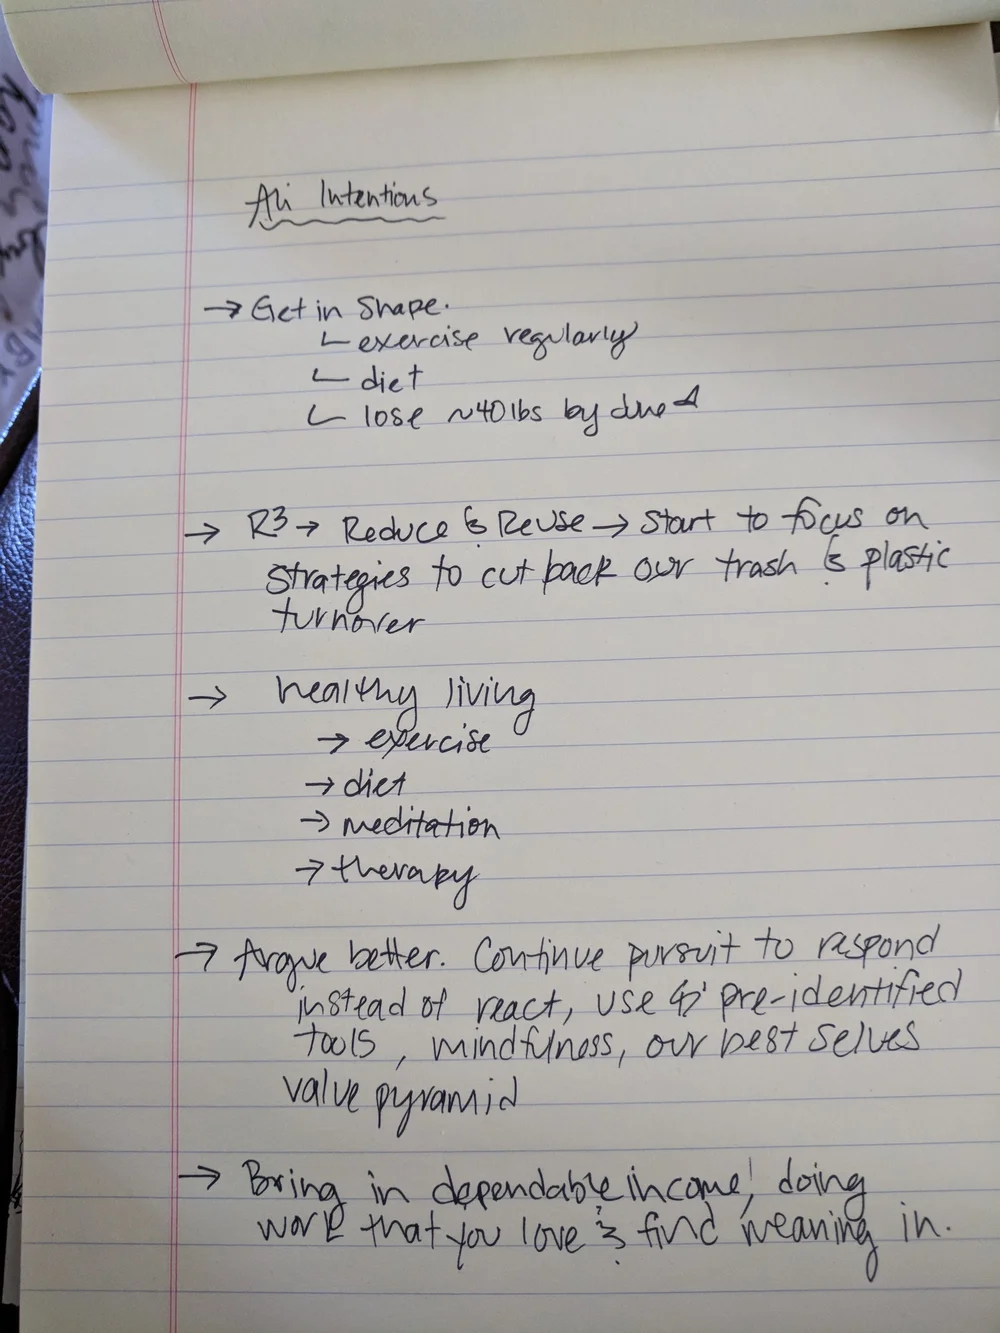 Ali Intentions
→ Get in Shape.
exercise regularly
diet
lose ~40 lbs by June
→ R3 → Reduce & Reuse → Start to focus on
strategies to cut back our trash & plastic
turnover
→ healthy living
→ exercise
→ diet
→ meditation
→ therapy
→ Argue better. Continue pursuit to respond
instead of react, use pre-identified
tools, mindfulness, our best selves
value pyramid
→ Bring in dependable income, doing
work that you love & find meaning in.